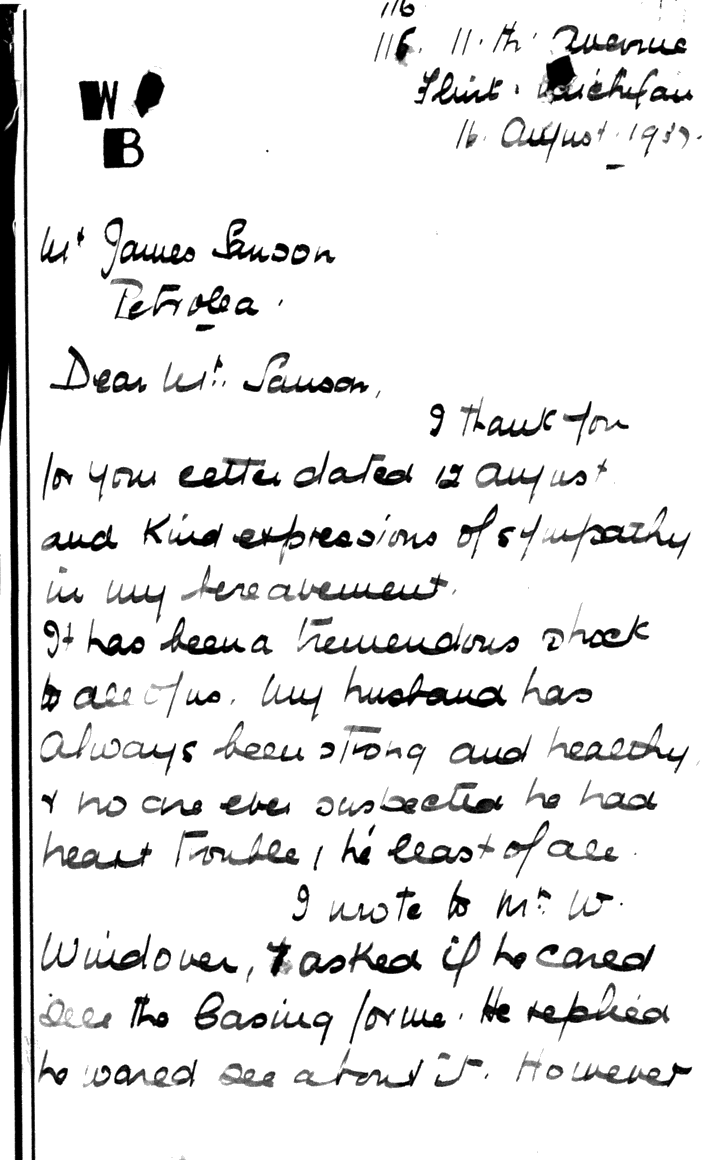 116
116. 11.th. Avenue
Flint. Michigan
16. August. 1937.
W
B
Mr James Sanson
Petrolea.
Dear Mr. Sanson,
I thank you
for your letter dated 12 August
and kind expressions of sympathy
in my bereavement.
It has been a tremendous shock
to all of us. My husband has
always been strong and healthy,
& no one ever suspected he had
heart trouble, he least of all.
I wrote to Mr. W.
Windover, & asked if he cared
the casing for me. He replied
he see about it. However